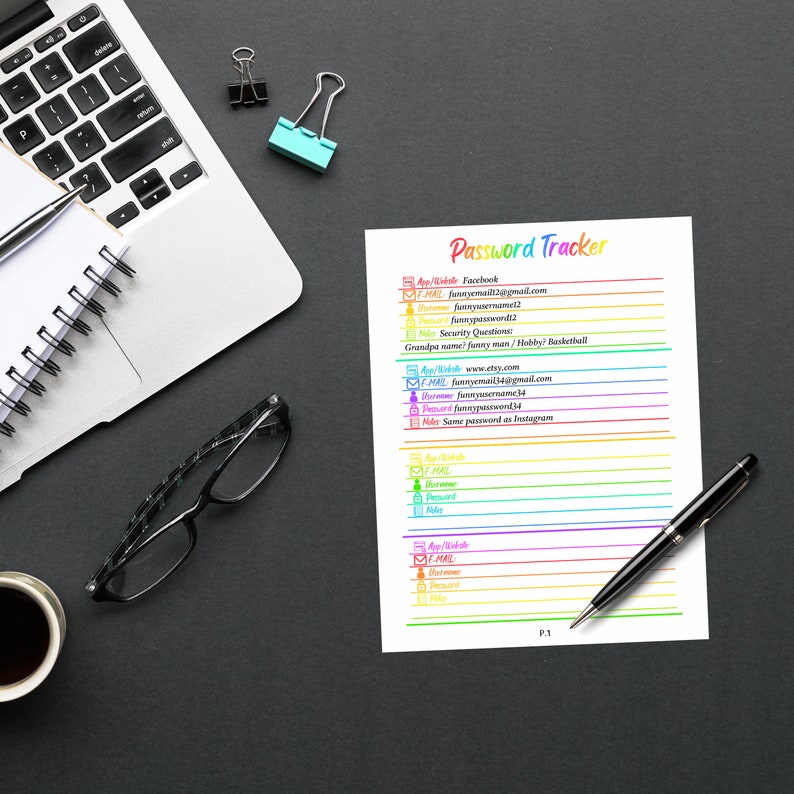 delete
enter
return
P
shift
Password Tracker
App/Website: Facebook
E-MAIL: funnyemail12@gmail.com
Username: funnyusername12
Password: funnypassword12
Notes: Security Questions:
Grandpa name? funny man / Hobby? Basketball
App/Website: www.etsy.com
E-MAIL: funnyemail34@gmail.com
Username: funnyusername34
Password: funnypassword34
Notes: Same password as Instagram
App/Website:
E-MAIL:
Username:
Password:
Notes:
App/Website:
E-MAIL:
Username:
Password:
Notes:
P.1